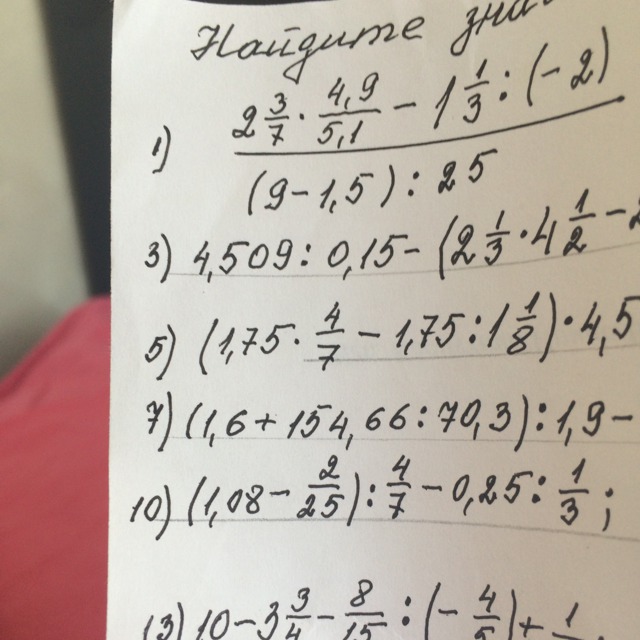 Найдите
1) (2 3/7 · 4,9/5,1 − 1 1/3 : (−2)) / ((9−1,5) : 25)
3) 4,509 : 0,15 − (2 1/3 · 4 1/2 −
5) (1,75 · 4/7 − 1,75 : 1 1/8) · 4,5
7) (1,6 + 154,66 : 70,3) : 1,9 −
10) (1,08 − 2/25) : 4/7 − 0,25 : 1/3 ;
13) 10 − 3 3/4 − 8/15 : (− 4/5) +